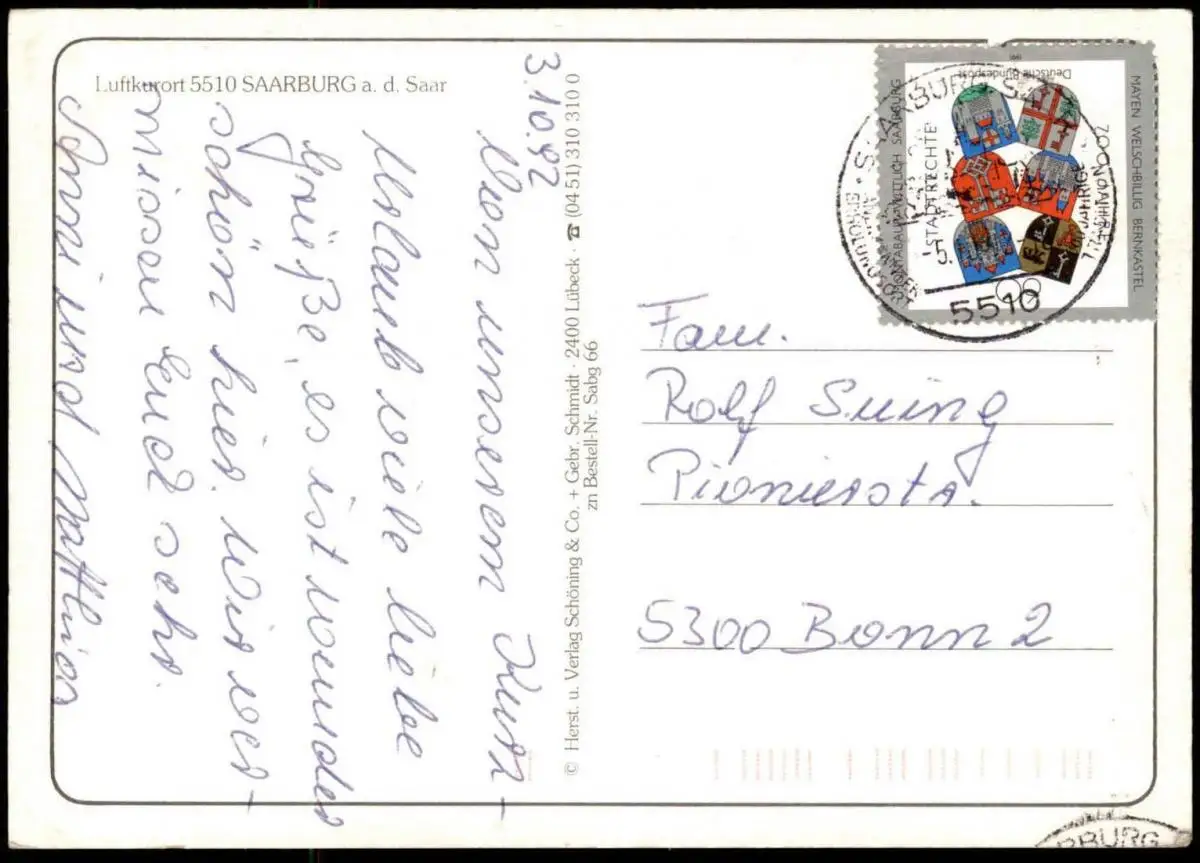 Luftkurort 5510 SAARBURG a. d. Saar
3.10.92
Von unserem Kurz-
urlaub viele liebe
Grüße, es ist wunder
schön hier. Wir ver-
missen Euch sehr.
und Matthias
© Herst. u. Verlag Schöning & Co. + Gebr. Schmidt · 2400 Lübeck · ☎ (0451) 310 310 0
zn Bestell-Nr. Sabg 66
Deutsche Bundespost
MONTABAUR WITTLICH SAARBURG
MAYEN WELSCHBILLIG BERNKASTEL
STADTRECHTE
5510
Fam.
Rolf Suing
Pionierstr.
5300 Bonn 2
RBURG